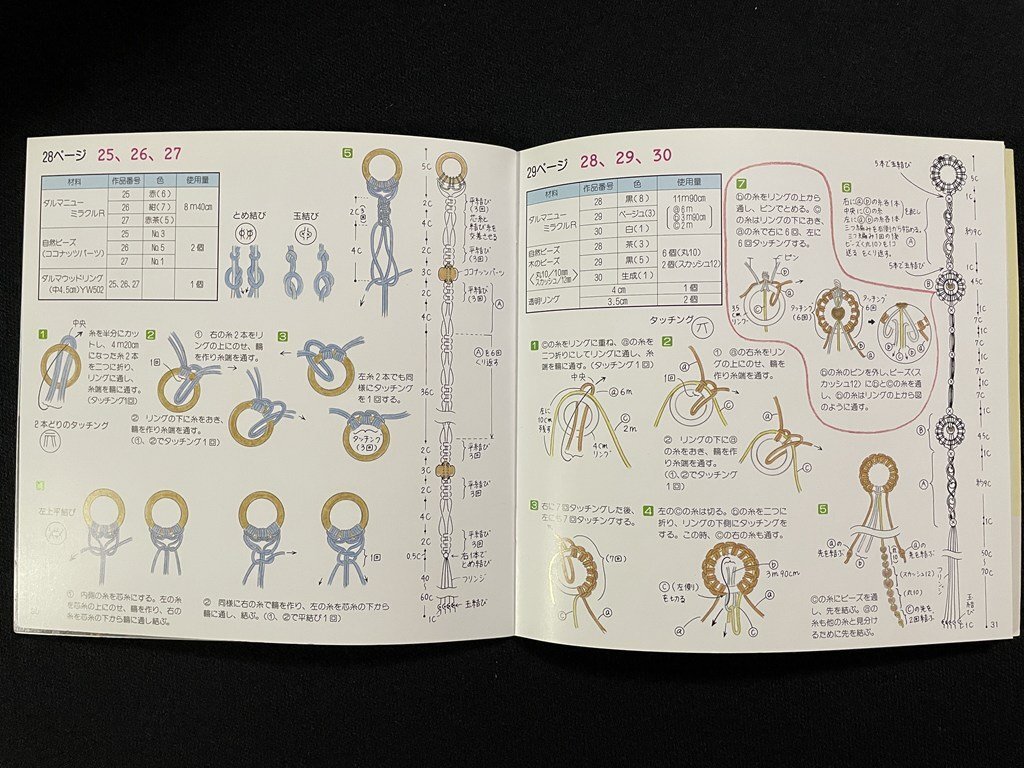 28ページ 25、26、27
材料 作品番号 色 使用量
ダルマニューミラクルR 25 赤(6) 8m40cm
26 紺(7)
27 赤茶(5)
自然ビーズ(ココナッツパーツ) 25 No.3 2個
26 No.5
27 No.1
ダルマウッドリング(中4.5cm)YW502 25、26、27 1個
とめ結び
玉結び
1
中央
糸を半分にカッ
トし、4m20cm
になった糸2本
を二つに折り、
リングに通し、
糸端を輪に通す。
(タッチング1回)
2本どりのタッチング
2
1回
① 右の糸2本をリ
ングの上にのせ、輪
を作り糸端を通す。
② リングの下に糸をおき、
輪を作り糸端を通す。
(①、②でタッチング1回)
3
左糸2本でも同
様にタッチング
を1回する。
タッチング
(3回)
4
左上平結び
① 内側の糸を芯糸にする。左の糸
を芯糸の上にのせ、輪を作り、右の
糸を芯糸の下から輪に通し結ぶ。
1回
② 同様に右の糸で輪を作り、左の糸を芯糸の下から
輪に通し、結ぶ。(①、②で平結び1回)
5
2C
3回
4C
5C
2C
4C
2C
3C
2C
4C
36C
2C
3C
2C
4C
2C
0.5C
40
〜
60C
1C
平結び
(3回)
芯糸と
結び糸を
交差させる
平結び
3回
ココナッツパーツ
平結び
(3回)
Ⓐ
Ⓐを6回
くり返す
平結び
3回
平結び
3回
平結び
3回
右1本で
とめ結び
フリンジ
玉結び
29ページ 28、29、30
材料 作品番号 色 使用量
ダルマニューミラクルR 28 黒(8) 11m90cm
29 ベージュ(3) ⓐ6m ⓑ3m90cm ⓒ2m
30 白(1)
自然ビーズ 木のビーズ〈丸10/10mm スカッシュ/12mm〉 28 茶(3) 6個(丸10) 2個(スカッシュ12)
29 黒(5)
30 生成(1)
透明リング 4cm 1個
3.5cm 2個
タッチング
1
ⓒの糸をリングに重ね、ⓐの糸を
二つ折りにしてリングに通し、糸
端を輪に通す。(タッチング1回)
中央
ⓐ6m
左に
10cm
残す
ⓒ
2m
4cm
リング
2
① ⓐの右糸をリン
グの上にのせ、輪を
作り糸端を通す。
1回
② リングの下にⓐ
の糸をおき、輪を作
り糸端を通す。
(①、②でタッチング
1回)
3
右に7回タッチングした後、
左にも7回タッチングする。
(7回)
4
左のⓒの糸は切る。ⓑの糸を二つに
折り、リングの下側にタッチングを
する。この時、ⓒの右の糸も通す。
ⓒ(左側)
をとめる
ⓑ
3m90cm
5
ⓐの
先を結ぶ
ⓐの
先を結ぶ
(スカッシュ12)
(丸10)
ⓒの先を
2回結ぶ
ⓒの糸にビーズを通
し、先を結ぶ。ⓐの
糸も他の糸と見分け
るために先を結ぶ。
6
5本で玉結び
右にⓐⓑの糸各1本
中央にⓒの糸
左にⓐⓑの糸各1本
Ⓐ
をくり返す。
5本で玉結び
7
ⓑの糸をリングの上から
通し、ピンでとめる。ⓒ
の糸はリングの下におき、
ⓐの糸で右に6回、左に
6回タッチングする。
ピン
3.5
cm
リング
タッチング
(6回)
タッチング
6回
ⓑの糸のピンを外し、ビーズ(ス
カッシュ12)にⓑとⓒの糸を通
し、ⓑの糸はリングの上から図
のように通す。
5C
1C
約9C
1C
4.5C
1C
7C
1C
7C
1C
7C
1C
4.5C
1C
約9C
1C
50C
〜
70C
1C
Ⓑ
Ⓐ
Ⓑ
フリンジ
玉結び
31